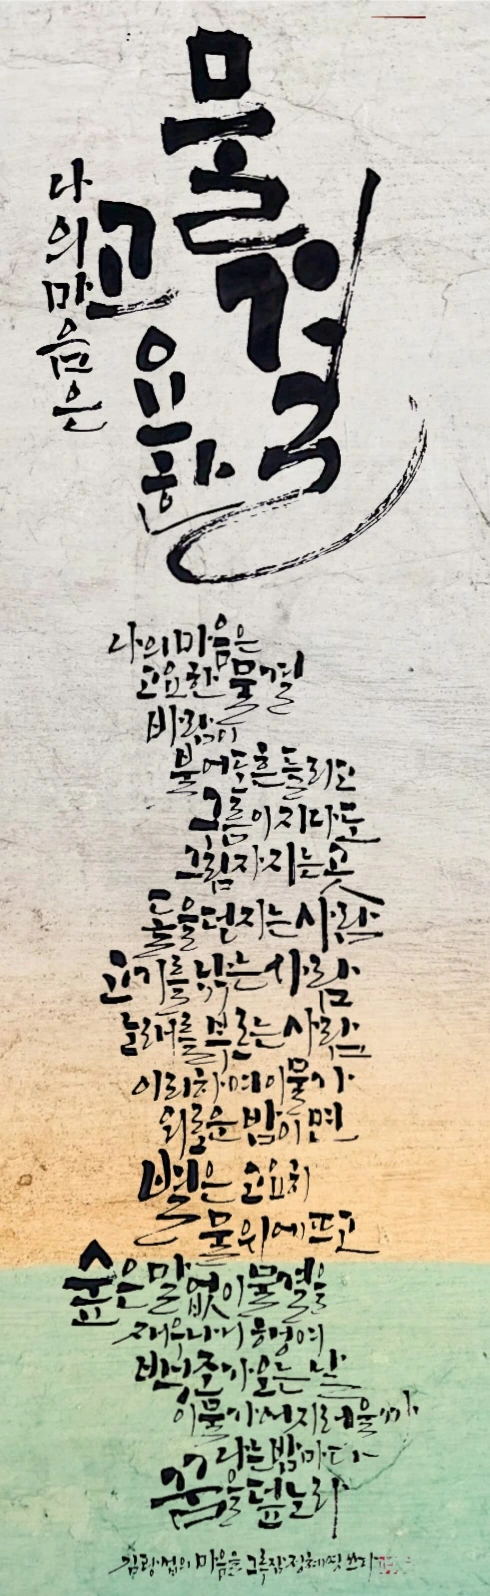 나의 마음은
고요한
물결
나의 마음은
고요한 물결
바람이
불어도 흔들리고
구름이 지나도
그림자 지는 곳
돌을 던지는 사람
고기를 낚는 사람
노래를 부르는 사람
이리하여 이 물가
외로운 밤이면
별은 고요히
물 위에 뜨고
숲은 말없이 물결을
재우나니 행여
백조가 오는 날
이 물가 어지러울까
나는 밤마다
꿈을 덮노라
김광섭의 마음을 그루잠 쓰다